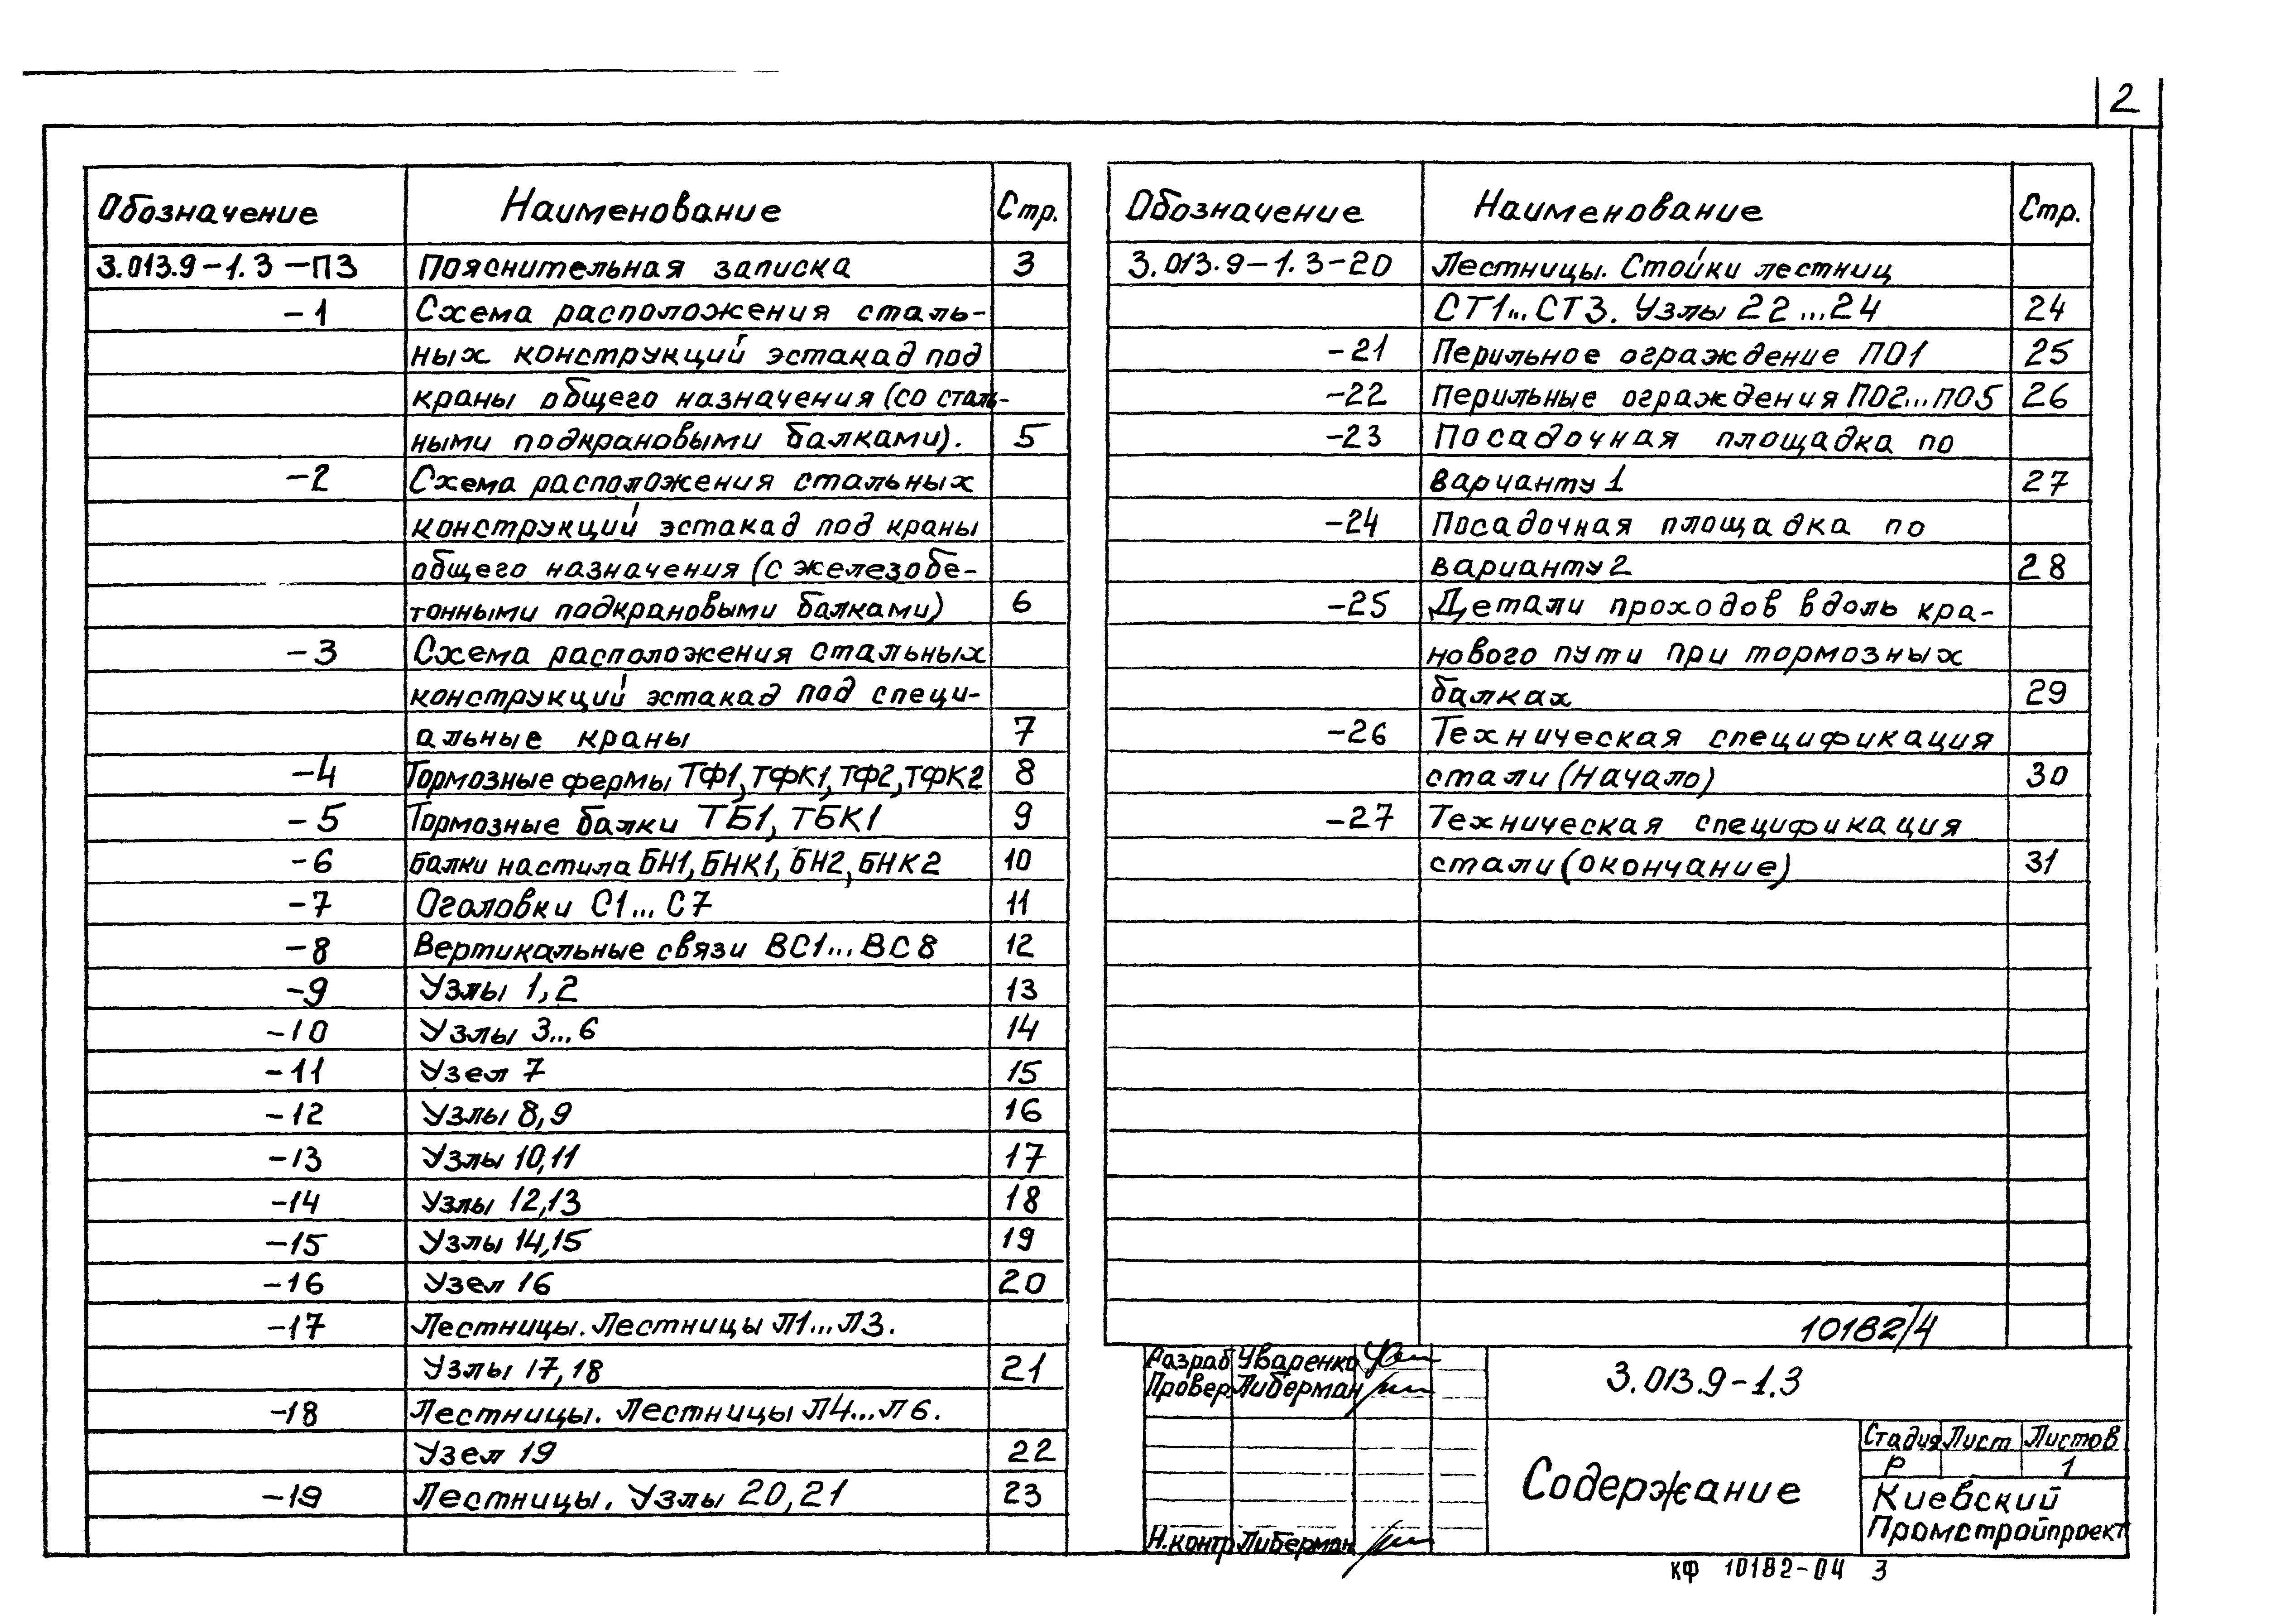 2
Обозначение Наименование Стр.
3.013.9-1.3-ПЗ Пояснительная записка 3
-1 Схема расположения сталь-
ных конструкций эстакад под
краны общего назначения (со сталь-
ными подкрановыми балками). 5
-2 Схема расположения стальных
конструкций эстакад под краны
общего назначения (с железобе-
тонными подкрановыми балками) 6
-3 Схема расположения стальных
конструкций эстакад под специ-
альные краны 7
-4 Тормозные фермы ТФ1, ТФК1, ТФ2, ТФК2 8
-5 Тормозные балки ТБ1, ТБК1 9
-6 Балки настила БН1, БНК1, БН2, БНК2 10
-7 Оголовки С1...С7 11
-8 Вертикальные связи ВС1...ВС8 12
-9 Узлы 1,2 13
-10 Узлы 3...6 14
-11 Узел 7 15
-12 Узлы 8,9 16
-13 Узлы 10,11 17
-14 Узлы 12,13 18
-15 Узлы 14,15 19
-16 Узел 16 20
-17 Лестницы. Лестницы Л1...Л3.
Узлы 17,18 21
-18 Лестницы. Лестницы Л4...Л6.
Узел 19 22
-19 Лестницы. Узлы 20,21 23
Обозначение Наименование Стр.
3.013.9-1.3-20 Лестницы. Стойки лестниц
СТ1...СТ3. Узлы 22...24 24
-21 Перильное ограждение ПО1 25
-22 Перильные ограждения ПО2...ПО5 26
-23 Посадочная площадка по
варианту 1 27
-24 Посадочная площадка по
варианту 2 28
-25 Детали проходов вдоль кра-
нового пути при тормозных
балках 29
-26 Техническая спецификация
стали (начало) 30
-27 Техническая спецификация
стали (окончание) 31
10182/4
Разраб Уваренко
Провер Либерман
Н.контр Либерман
3.013.9-1.3
Содержание
Стадия Лист Листов
Р 1
Киевский
Промстройпроект
КФ 10182-04 3